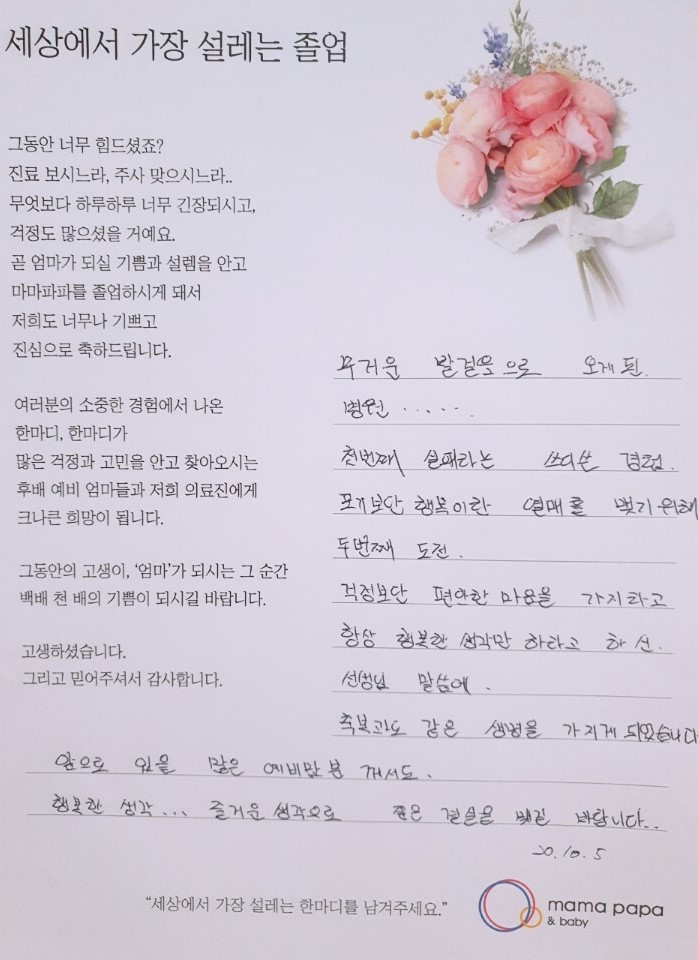 세상에서 가장 설레는 졸업
그동안 너무 힘드셨죠?
진료 보시느라, 주사 맞으시느라..
무엇보다 하루하루 너무 긴장되시고,
걱정도 많으셨을 거예요.
곧 엄마가 되실 기쁨과 설렘을 안고
마마파파를 졸업하시게 돼서
저희도 너무나 기쁘고
진심으로 축하드립니다.
여러분의 소중한 경험에서 나온
한마디, 한마디가
많은 걱정과 고민을 안고 찾아오시는
후배 예비 엄마들과 저희 의료진에게
크나큰 희망이 됩니다.
그동안의 고생이, '엄마'가 되시는 그 순간
백배 천 배의 기쁨이 되시길 바랍니다.
고생하셨습니다.
그리고 믿어주셔서 감사합니다.
무거운 발걸음으로 오게된.
병원 ......
첫번째 실패라는 쓰디쓴 경험.
포기보단 행복이란 열매를 맺기위해
두번째 도전.
걱정보단 편안한 마음을 가지라고
항상 행복한 생각만 하라고 하신.
선생님 말씀에.
축복과도 같은 생명을 가지게 되었습니다
앞으로 있을 많은 예비맘분께서도.
행복한 생각... 즐거운 생각으로 좋은 결실을 맺길 바랍니다..
20.10.5
"세상에서 가장 설레는 한마디를 남겨주세요."
mama papa
& baby